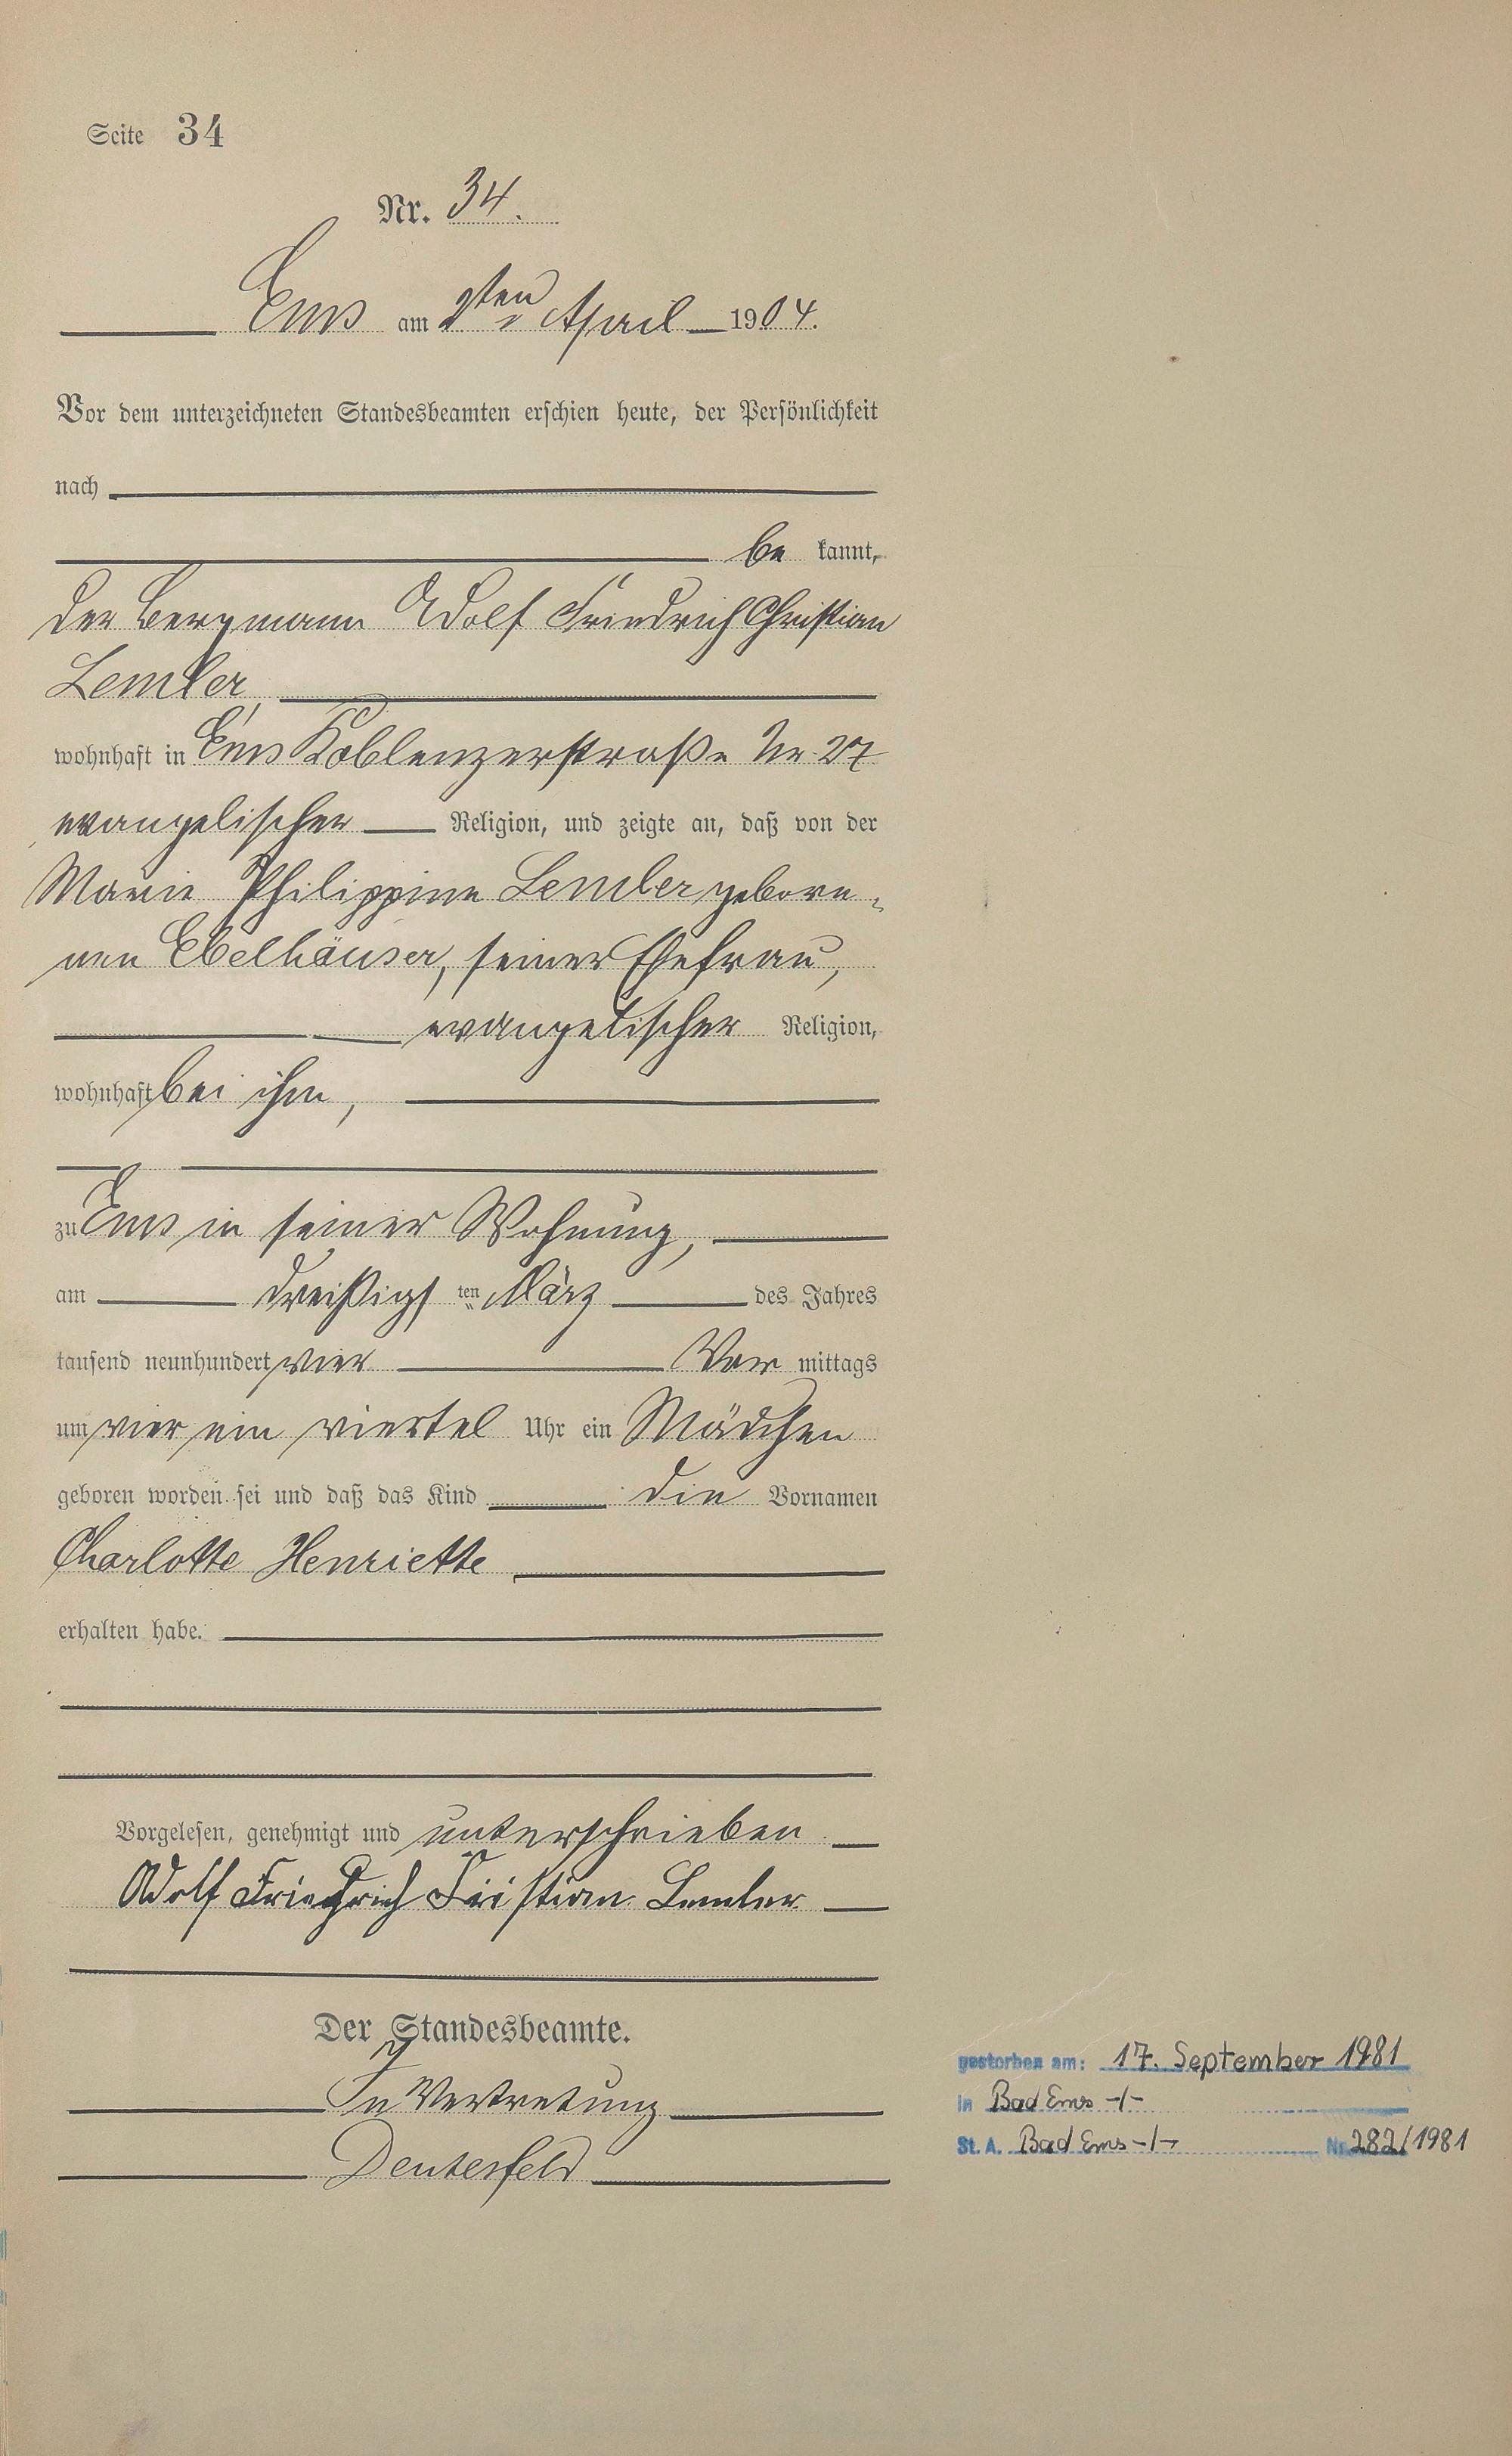 Seite 34
Nr. 34.
Ems am 2ten April 1904.
Vor dem unterzeichneten Standesbeamten erschien heute, der Persönlichkeit
nach
be kannt,
der Bergmann Adolf Friedrich Christian
Lemler
wohnhaft in Ems Koblenzerstraße Nr 27
evangelischer Religion, und zeigte an, daß von der
Marie Philippine Lemler gebore-
nen Ebelhäuser, seiner Ehefrau,
evangelischer Religion,
wohnhaft bei ihm,
zu Ems in seiner Wohnung,
am dreißigsten März des Jahres
tausend neunhundert vier Vor mittags
um vier ein viertel Uhr ein Mädchen
geboren worden sei und daß das Kind die Vornamen
Charlotte Henriette
erhalten habe.
Vorgelesen, genehmigt und unterschrieben
Adolf Friedrich Kristian Lemler
Der Standesbeamte.
In Vertretung
Deutesfeld
gestorben am: 17. September 1981
in Bad Ems -/-
St. A. Bad Ems -/- Nr. 282/1981